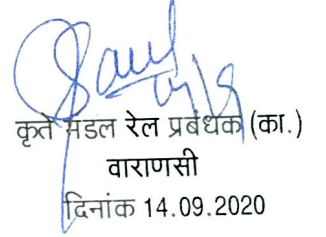 कृते मंडल रेल प्रबंधक (का.)
वाराणसी
दिनांक 14.09.2020